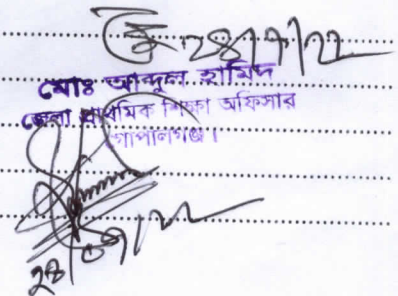 ২৪/৭/২২
মোঃ আব্দুল হামিদ
জেলা প্রাথমিক শিক্ষা অফিসার
গোপালগঞ্জ।